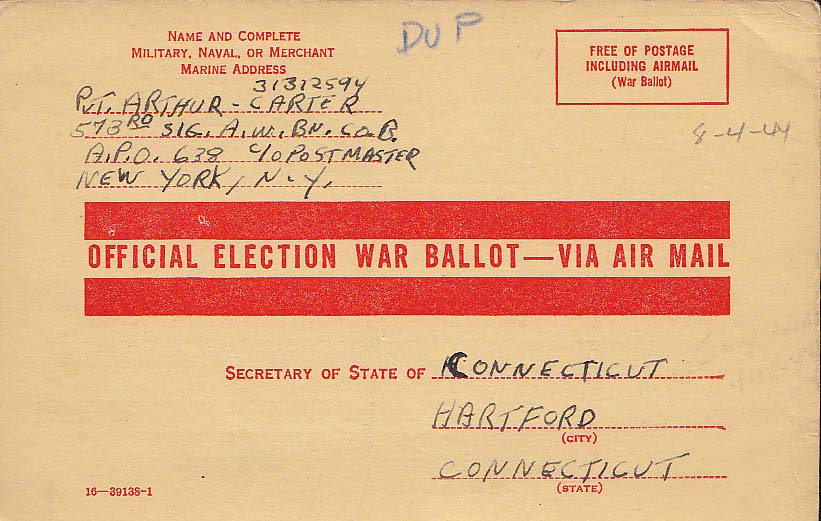 NAME AND COMPLETE
MILITARY, NAVAL, OR MERCHANT
MARINE ADDRESS
DUP
FREE OF POSTAGE
INCLUDING AIRMAIL
(War Ballot)
31312594
PVT. ARTHUR - CARTER
573RD SIG. A.W. BN. CO. B.
A.P.O. 638 C/O POSTMASTER
NEW YORK, N.Y.
8-4-44
OFFICIAL ELECTION WAR BALLOT—VIA AIR MAIL
SECRETARY OF STATE OF CONNECTICUT
HARTFORD
(CITY)
CONNECTICUT
(STATE)
16—39138-1